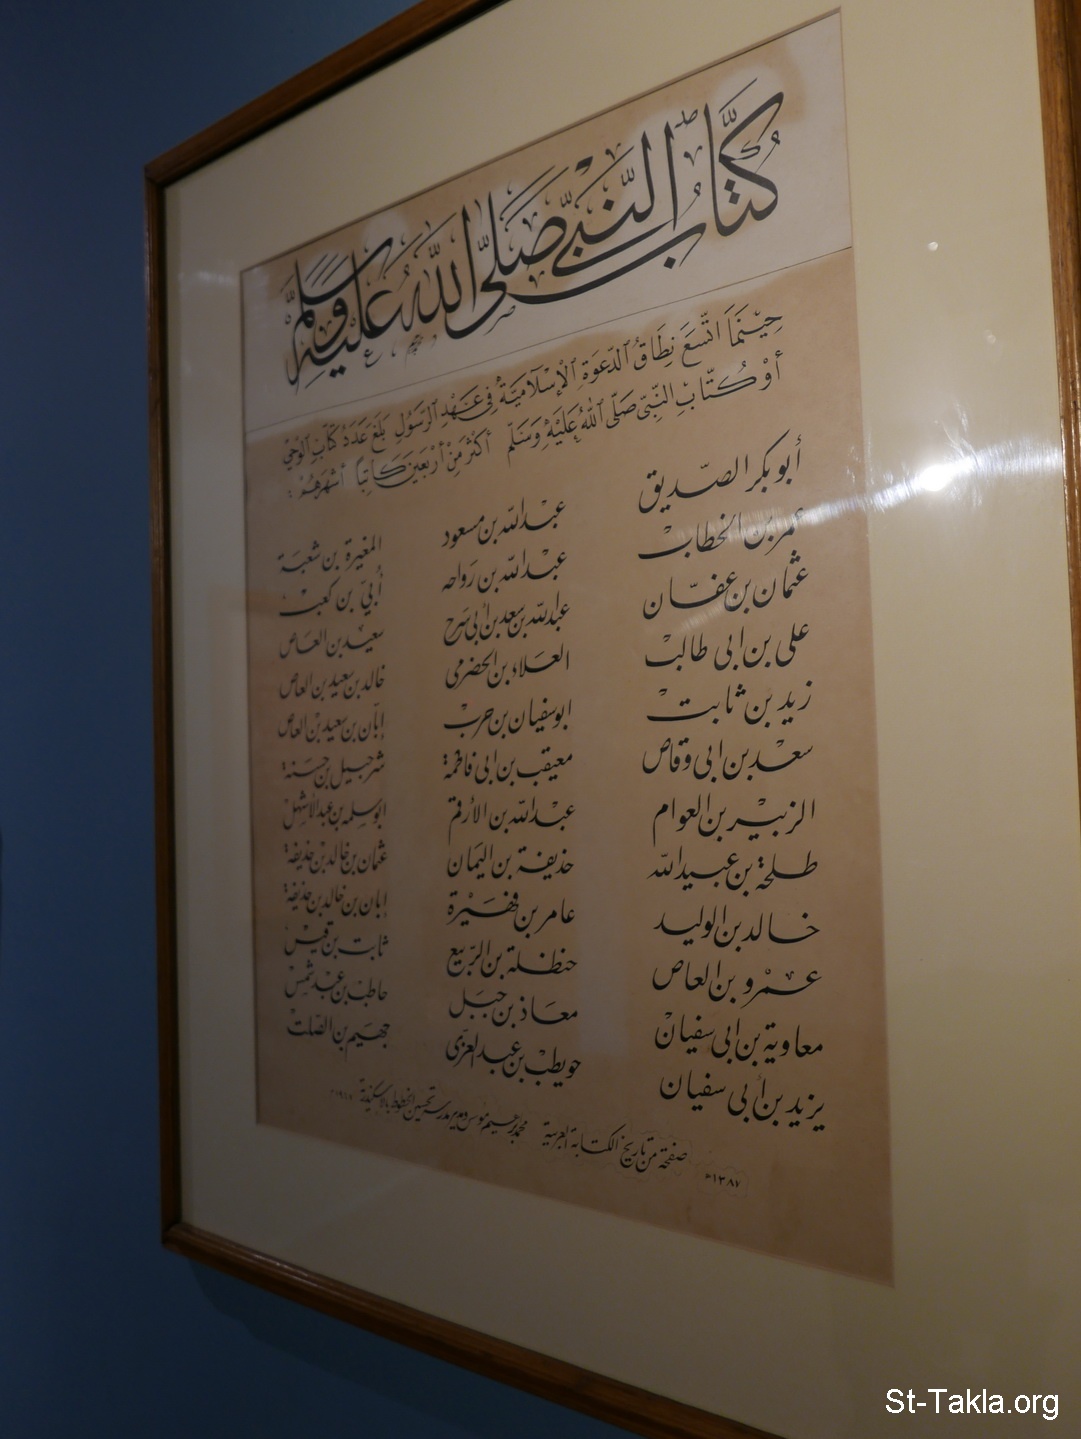 كُتَّابُ النَّبِيِّ صَلَّى اللَّهُ عَلَيْهِ وَسَلَّمَ
حِيْنَمَا اتَّسَعَ نِطَاقُ الدَّعْوَةِ الْإِسْلَامِيَّةِ فِي عَهْدِ الرَّسُولِ بَلَغَ عَدَدُ كُتَّابِ الْوَحْيِ
أَوْ كُتَّابِ النَّبِيِّ صَلَّى اللَّهُ عَلَيْهِ وَسَلَّم أَكْثَرَ مِنْ أَرْبَعِينَ كَاتِبًا أَشْهَرُهُمْ :
أبو بكر الصّديق
عمر بن الخطاب
عثمان بن عفّان
على بن ابى طالب
زيد بن ثابت
سعد بن ابى وقاص
الزبير بن العوام
طلحة بن عبيد الله
خالد بن الوليد
عمرو بن العاص
معاوية بن ابى سفيان
يزيد بن أبى سفيان
عبد الله بن مسعود
عبد الله بن رواحه
عبد الله بن سعد بن أبى سرح
العلاء بن الحضرمى
ابو سفيان بن حرب
معيقب بن ابى فاطمة
عبد الله بن الأرقم
حذيفة بن اليمان
عامر بن فهيرة
حنظلة بن الربيع
معاذ بن جبل
حويطب بن عبد العزّى
المغيرة بن شعبة
أُبيّ بن كعب
سعيد بن العاص
خالد بن سعيد بن العاص
إبّان بن سعيد بن العاص
شرحبيل بن حسنة
ابو سلمه بن عبد الأشهل
عثمان بن خالد بن حذيفة
إبان بن خالد بن حذيفة
ثابت بن قيس
حاطب بن عبد شمس
جهيم بن الصّلت
صفحة من تاريخ الكتابة العربية محمد ابرهيم مؤسس ومدير مدرسة تحسين الخطوط بالاسكندرية
١٣٨٧ه
St-Takla.org